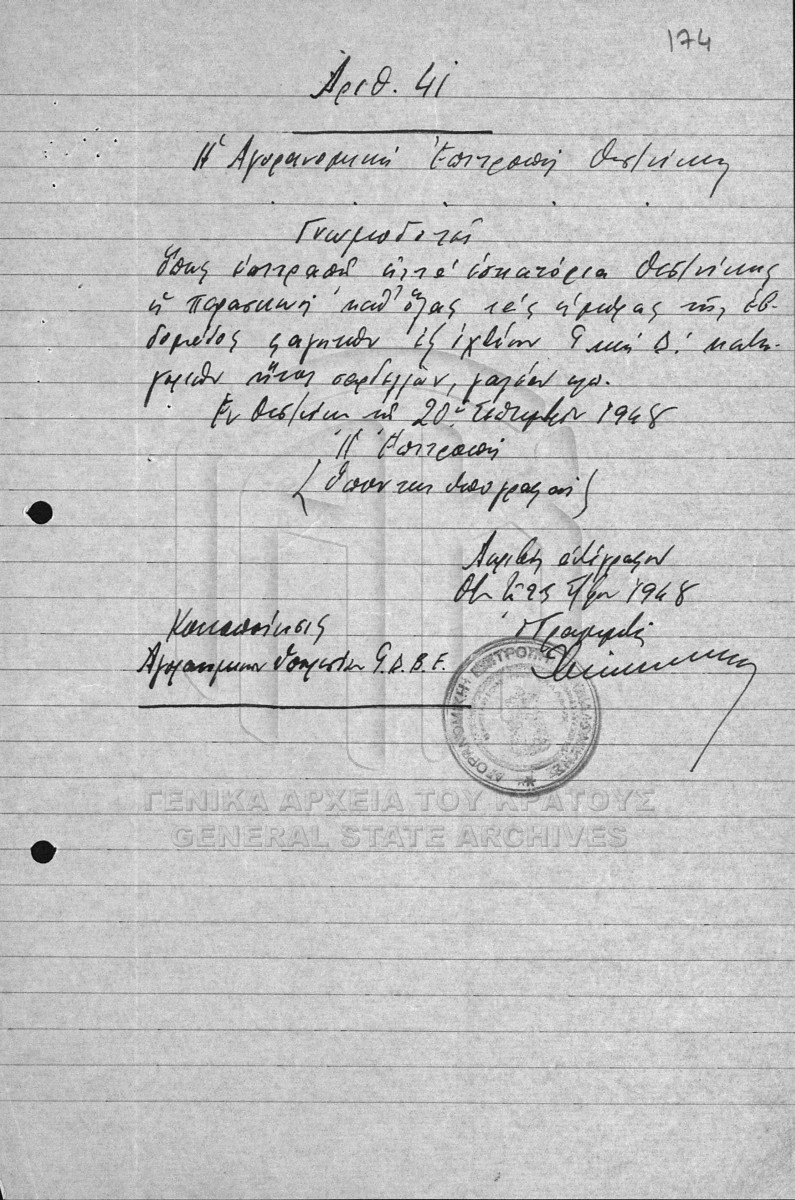 174
Αριθ. 41
Ἡ Ἀγορανομική Ἐπιτροπή Θεσ/νίκης
Γνωμοδοτεῖ
ὅπως ἐπιτραπῇ εἰς τά ἑστιατόρια Θεσ/νίκης
ἡ παρασκευή καθ' ὅλας τάς ἡμέρας τῆς ἑβ-
δομάδος φαγητῶν ἐξ ἰχθύων Γ καί Δ. κατη-
γοριῶν ἤτοι σαρδελλῶν, γαλέου κλπ.
Ἐν Θεσ/νίκῃ τῇ 20ῇ Σεπτεμβρίου 1948
Ἡ Ἐπιτροπή
(Ἕπονται ὑπογραφαί)
Ἀκριβές ἀντίγραφον
Θεσ. τῇ 25 7/βρίου 1948
Ὁ Γραμματεύς
Κοινοποίησις
Ἀγορανομικήν Ὑπηρεσίαν Γ.Δ.Β.Ε.
ΑΓΟΡΑΝΟΜΙΚΗ ΕΠΙΤΡΟΠΗ ΘΕΣΣΑΛΟΝΙΚΗΣ
ΓΕΝΙΚΑ ΑΡΧΕΙΑ ΤΟΥ ΚΡΑΤΟΥΣ
GENERAL STATE ARCHIVES